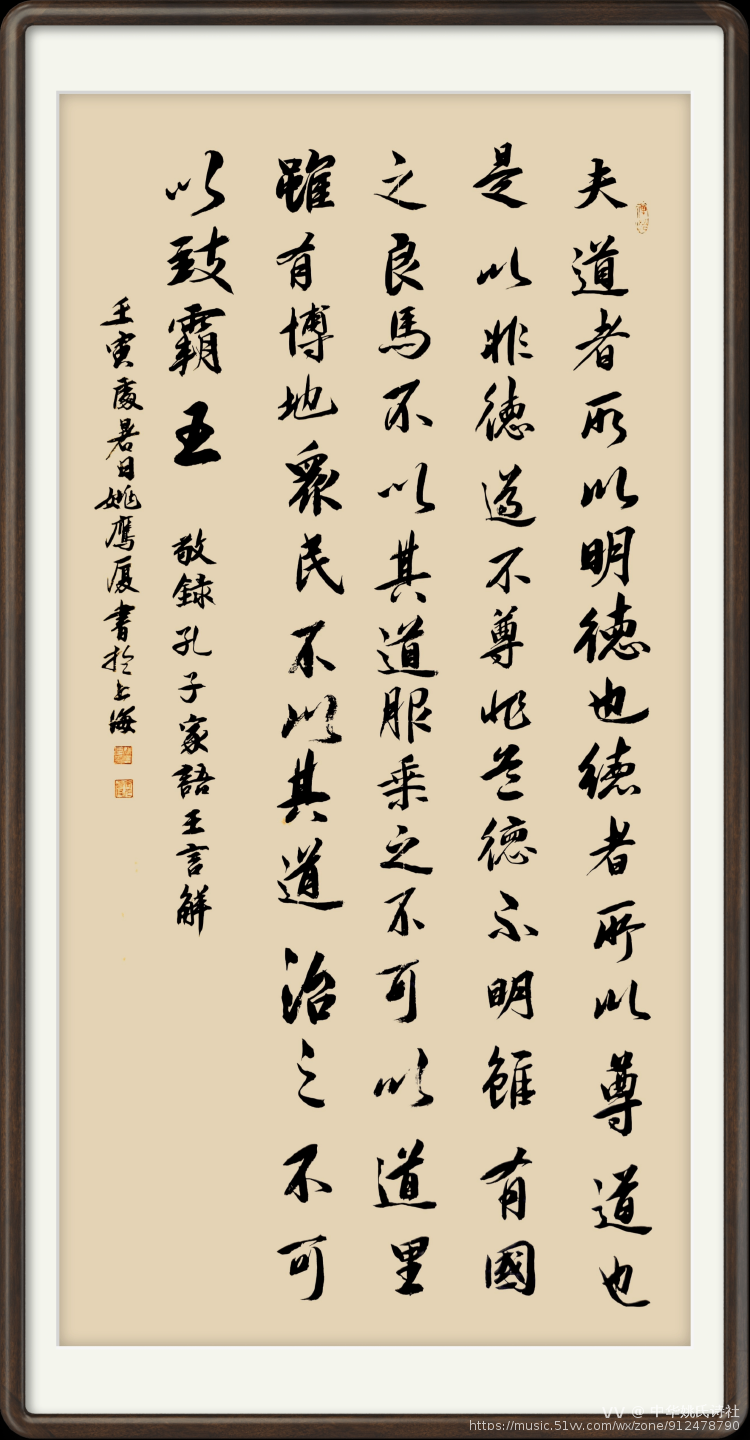 夫道者所以明德也德者所以尊道也
是以非德道不尊非道德不明雖有國
之良馬不以其道服乘之不可以道里
雖有博地眾民不以其道治之不可
以致霸王
敬録孔子家語王言解
壬寅處暑日姚鷹廈書於上海
@中华姚氏诗社
https://music.51vv.com/wx/zone/912478790